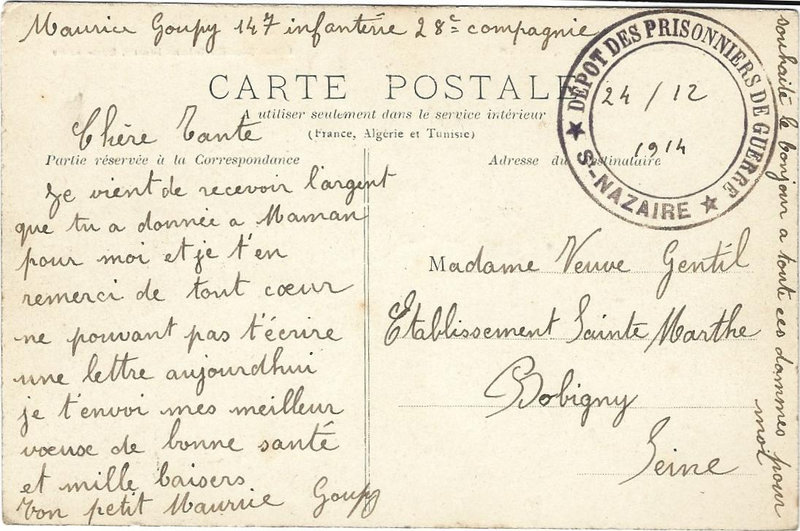 Maurice Goupy 147 infanterie 28e compagnie
CARTE POSTALE
A utiliser seulement dans le service intérieur
(France, Algérie et Tunisie)
DÉPÔT DES PRISONNIERS DE GUERRE
★ ST-NAZAIRE ★
24 / 12
1914
Partie réservée à la Correspondance
Adresse du Destinataire
Chère Tante
Je vient de recevoir l'argent
que tu a donnée a Maman
pour moi et je t'en
remerci de tout cœur
ne pouvant pas t'écrire
une lettre aujourdhui
je t'envoi mes meilleur
vœuse de bonne santé
et mille baisers
Ton petit Maurice Goupy
Madame Veuve Gentil
Etablissement Sainte Marthe
Bobigny
Seine
souhaite le bonjour a toute ces dammes pour
moi